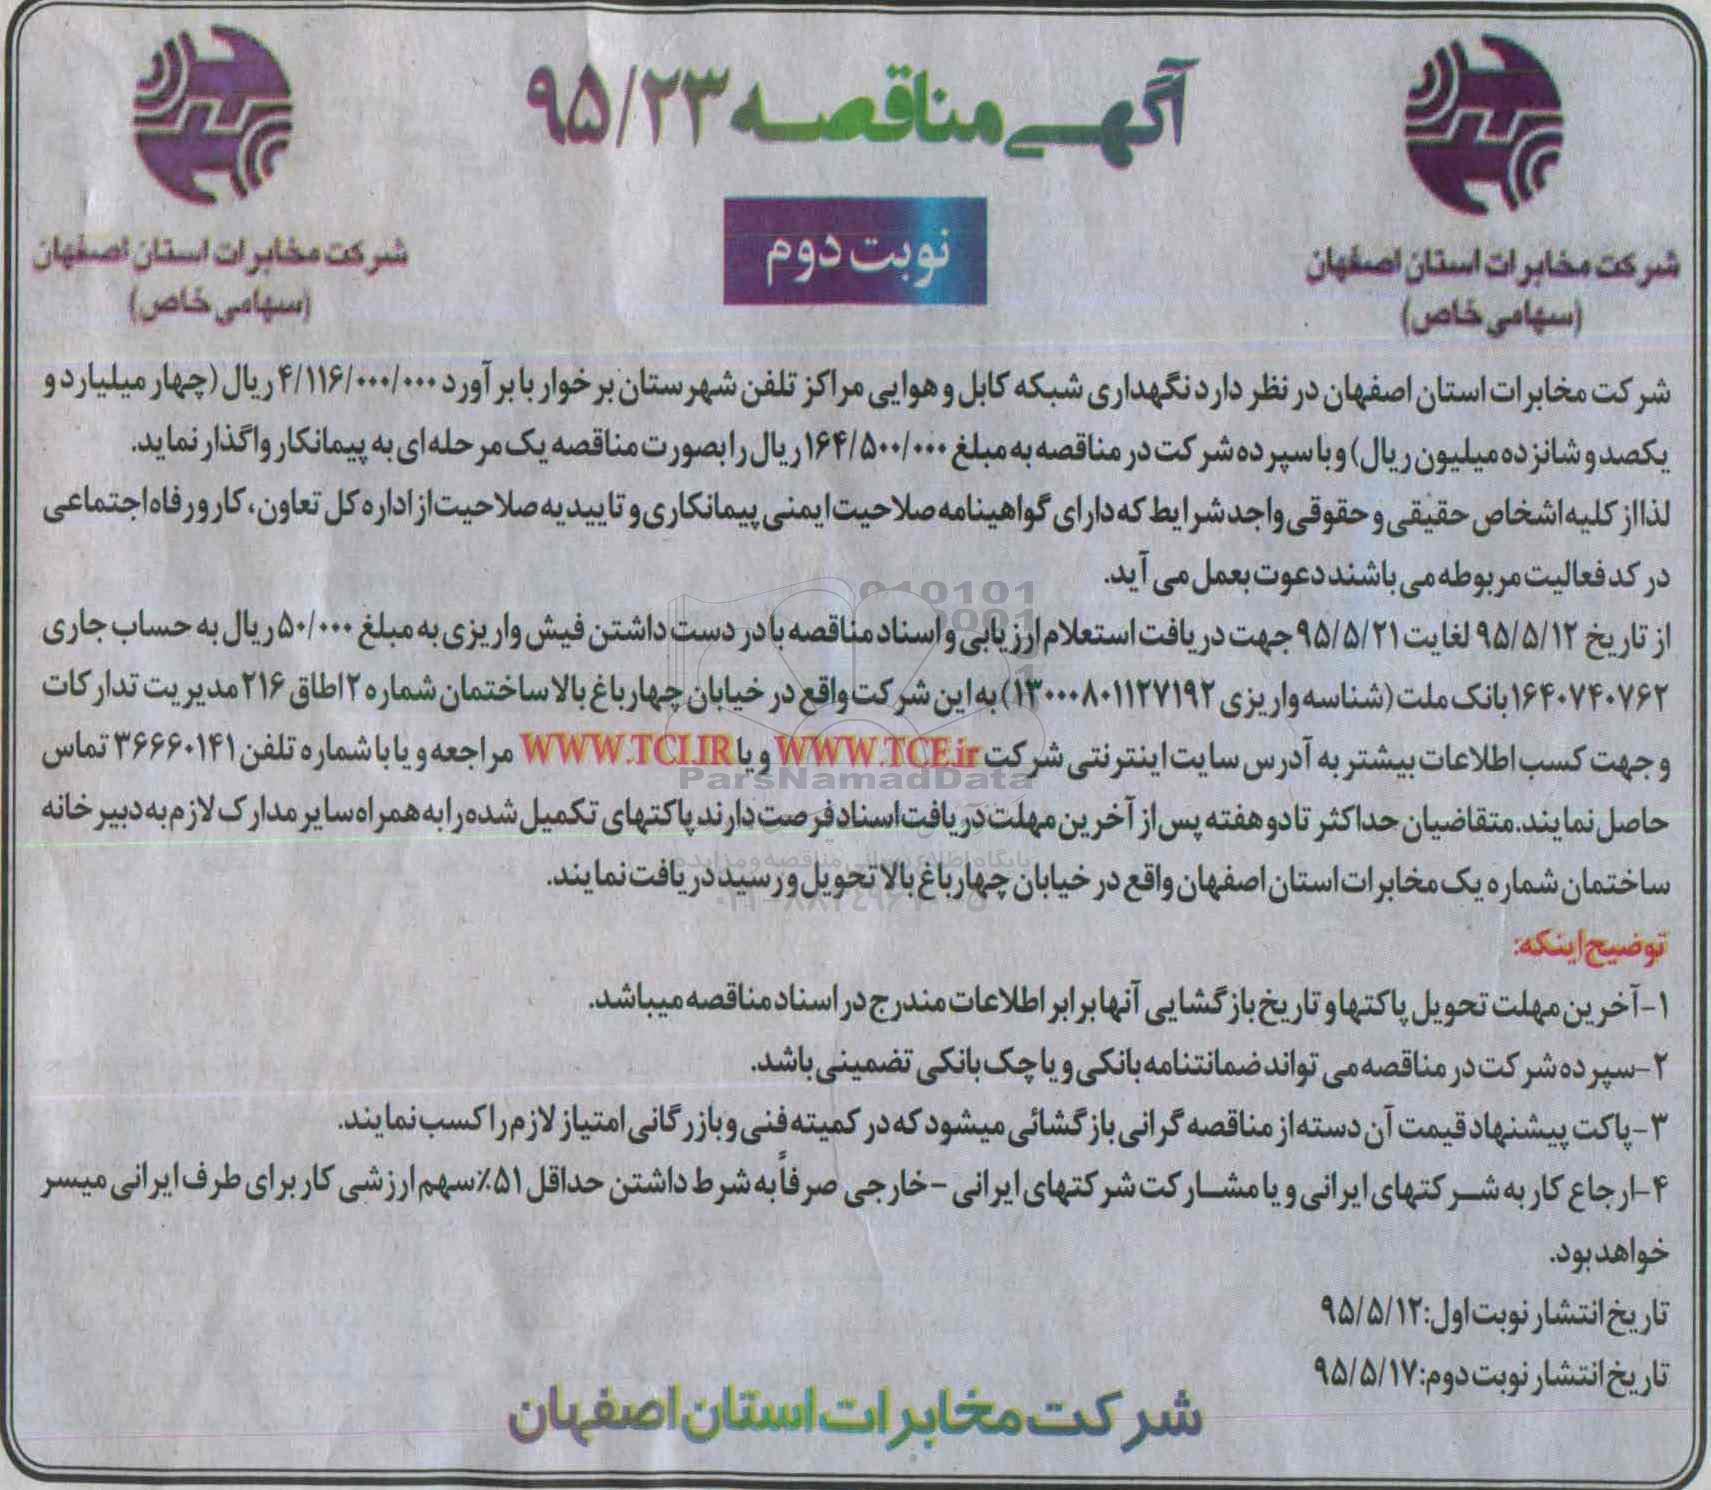 آگهی مناقصه ۹۵/۲۳
نوبت دوم
شرکت مخابرات استان اصفهان
(سهامی خاص)
شرکت مخابرات استان اصفهان
(سهامی خاص)
شرکت مخابرات استان اصفهان در نظر دارد نگهداری شبکه کابل و هوایی مراکز تلفن شهرستان برخوار با برآورد ۴/۱۱۶/۰۰۰/۰۰۰ ریال (چهار میلیارد و
یکصد و شانزده میلیون ریال) و با سپرده شرکت در مناقصه به مبلغ ۱۶۴/۵۰۰/۰۰۰ ریال را بصورت مناقصه یک مرحله ای به پیمانکار واگذار نماید.
لذا از کلیه اشخاص حقیقی و حقوقی واجد شرایط که دارای گواهینامه صلاحیت ایمنی پیمانکاری و تاییدیه صلاحیت از اداره کل تعاون، کار و رفاه اجتماعی
در کد فعالیت مربوطه می باشند دعوت بعمل می آید.
از تاریخ ۹۵/۵/۱۲ لغایت ۹۵/۵/۲۱ جهت دریافت استعلام ارزیابی و اسناد مناقصه با در دست داشتن فیش واریزی به مبلغ ۵۰/۰۰۰ ریال به حساب جاری
۱۶۴۰۷۴۰۷۶۲ بانک ملت (شناسه واریزی ۱۳۰۰۰۸۰۱۱۲۷۱۹۲) به این شرکت واقع در خیابان چهارباغ بالا ساختمان شماره ۲ اطاق ۲۱۶ مدیریت تدارکات
و جهت کسب اطلاعات بیشتر به آدرس سایت اینترنتی شرکت WWW.TCE.ir و یا WWW.TCI.IR مراجعه و یا با شماره تلفن ۳۶۶۶۰۱۴۱ تماس
حاصل نمایند. متقاضیان حداکثر تا دو هفته پس از آخرین مهلت دریافت اسناد فرصت دارند پاکتهای تکمیل شده را به همراه سایر مدارک لازم به دبیرخانه
ساختمان شماره یک مخابرات استان اصفهان واقع در خیابان چهارباغ بالا تحویل و رسید دریافت نمایند.
توضیح اینکه:
۱-آخرین مهلت تحویل پاکتها و تاریخ بازگشایی آنها برابر اطلاعات مندرج در اسناد مناقصه میباشد.
۲-سپرده شرکت در مناقصه می تواند ضمانتنامه بانکی و یا چک بانکی تضمینی باشد.
۳-پاکت پیشنهاد قیمت آن دسته از مناقصه گرانی بازگشائی میشود که در کمیته فنی و بازرگانی امتیاز لازم را کسب نمایند.
۴-ارجاع کار به شرکتهای ایرانی و یا مشارکت شرکتهای ایرانی -خارجی صرفاً به شرط داشتن حداقل ۵۱٪ سهم ارزشی کار برای طرف ایرانی میسر
خواهد بود.
تاریخ انتشار نوبت اول: ۹۵/۵/۱۲
تاریخ انتشار نوبت دوم: ۹۵/۵/۱۷
شرکت مخابرات استان اصفهان
ParsNamadData
پایگاه اطلاع رسانی مناقصه و مزایده